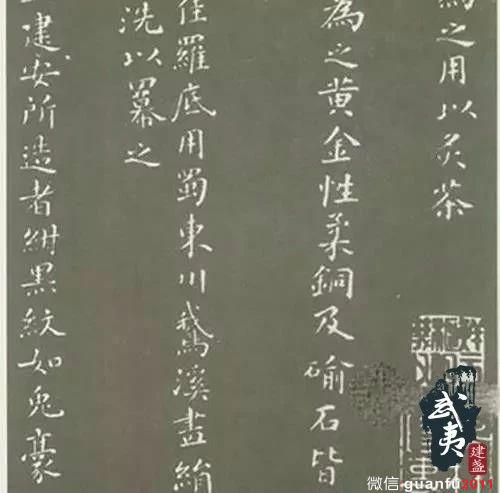 為之用以炙茶
為之黄金性柔銅及鍮石皆
佳羅底用蜀東川鵝溪畫絹
洗以羃之
建安所造者紺黑紋如兔豪
武夷
建盏
微信:guanfu2011